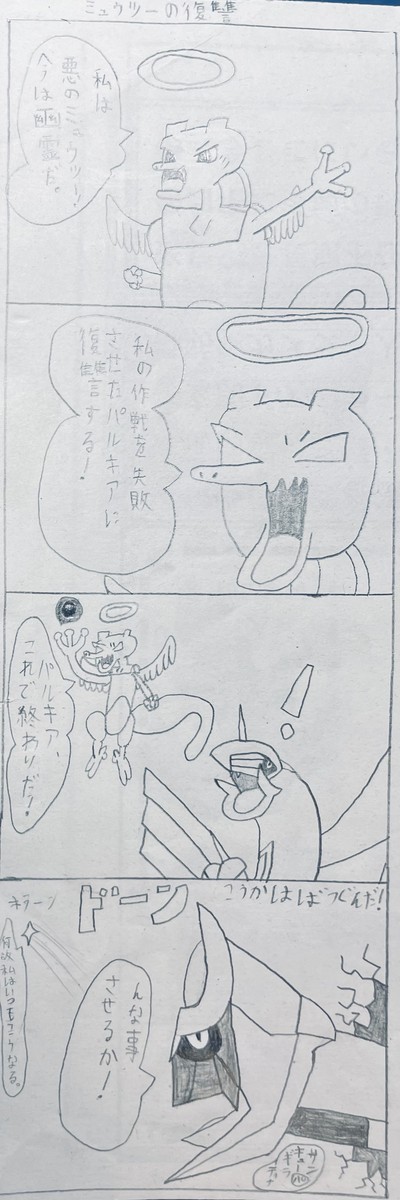 ミュウツーの復讐
私は
悪のミュウツー!
今は幽霊だ。
私の作戦を失敗
させたパルキアに
復讐する!
パルキア、
これで終わりだ!
こうかはばつぐんだ!
ドーン
キラーン
んな事
させるか!
何故私はいつもこうなる。
サン
キュー
ギラ
ティナ